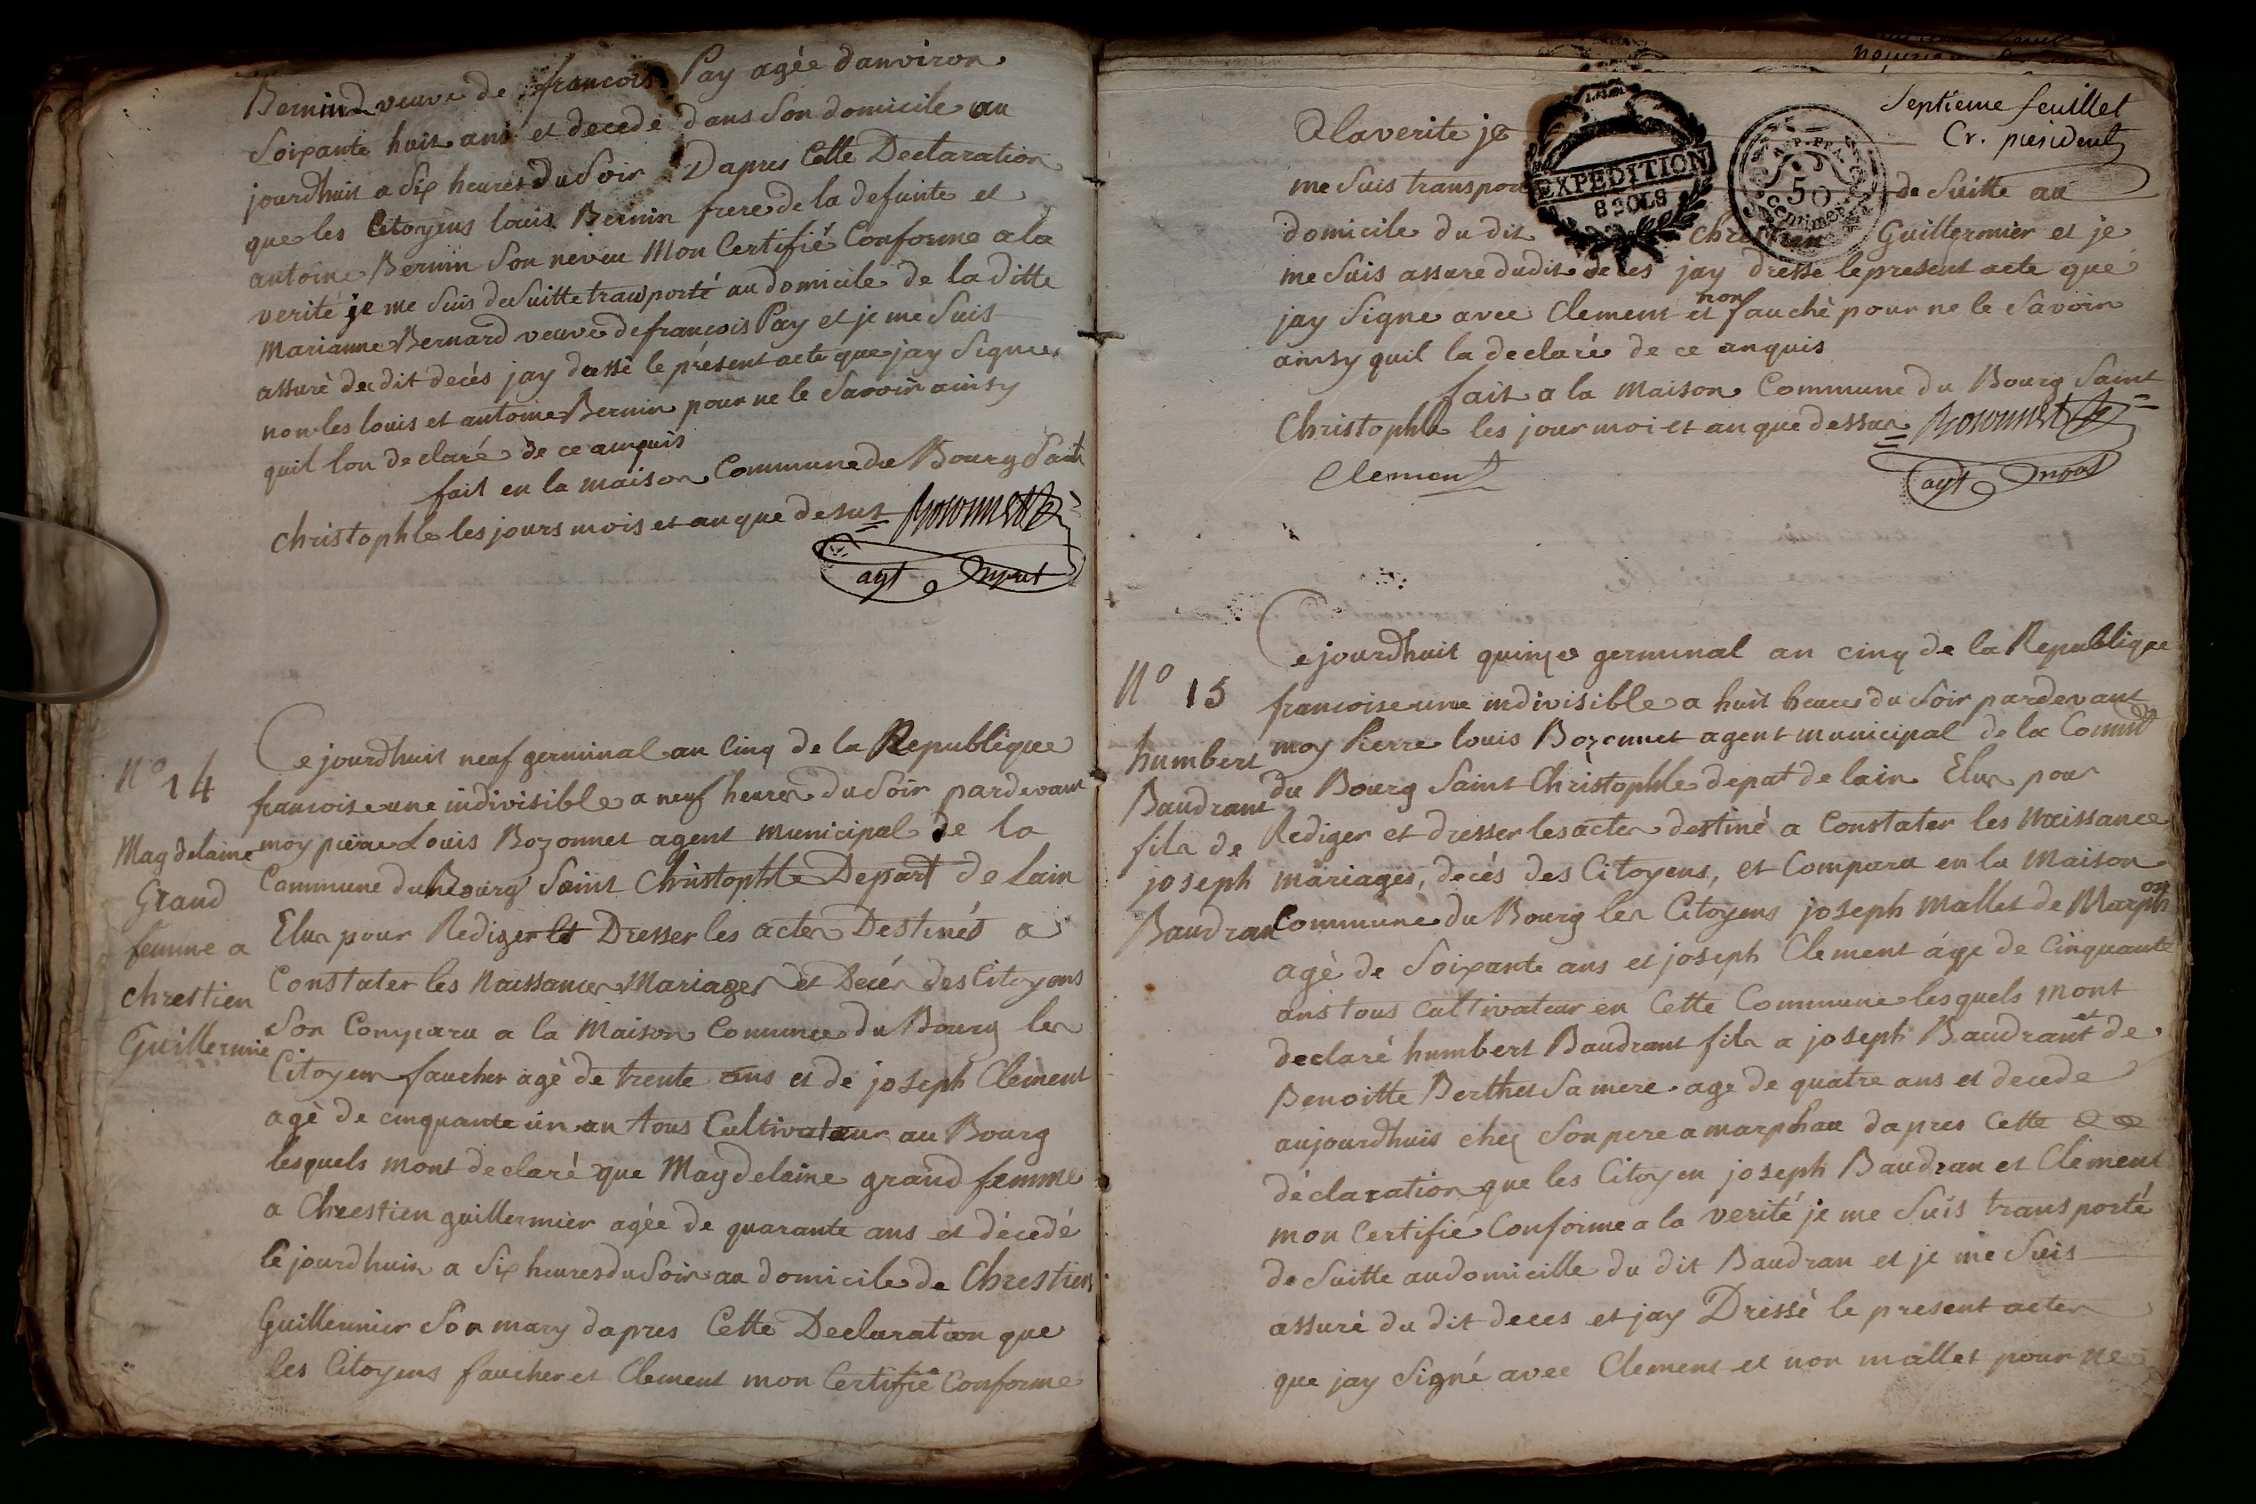 Bernind veuve de francois Pay agée danviron
Soixante huit ans et decedé dans Son domicile au
jourdhuit a Six heures du Soir Dapres Cette Declaration
que les Citoyens louis Bernin frere de la defunte et
antoine Bernin Son neveu Mon Certifié Conforme a la
verité je me Suis de Suitte transporté au domicile de la ditte
Marianne Bernard veuve de francois Pay et je me Suis
assuré du dit decés jay dressé le présent acte que jay Signer
non les louis et antoine Bernin pour ne le Savoir ainsy
quil lon declaré de ce anquis
fait en la maison Commune du Bourg Saint
Christophle les jours mois et an que desus Bozonnet
agt mpal
Ce jourdhuit neuf germinal an Cinq de la Republique
francoise une indivisible a neuf heures du Soir pardevant
moy pierre Louis Bozonnet agent municipal de la
Commune du Bourg Saint Christophle Depart de Lain
Elus pour Rediger et Dresser les actes Destinés a
Constater les Naissances Mariages et Decés des Citoyens
Son Comparu a la Maison Comunee du Bourg les
Citoyens faucher agé de trente ans et de joseph Clement
agé de cinquante un an tous Cultivateur au Bourg
lesquels mont declaré que Magdelaine grand femme
a Chrestien guillermier agée de quarante ans et décedé
Cejourdhuis a Six heures du Soir au domicile de Chrestien
Guillermier Son mary dapres Cette Declaration que
les Citoyens faucher et Clement mon Certifié Conforme
No 14
Magdelaine
Grand
femme a
chrestien
Guillermie
Septieme feuillet
Cr. president
EXPEDITION
8 SOLS
50
Centimes
A la verite je
me Suis transpor de Suitte au
domicile du dit chrestien Guillermier et je
me Suis assuré dudit deces jay dressé le present acte que
jay Signe avec Clement et non fauché pour ne le Savoir
ainsy quil la declaré de ce anquis
fait a la Maison Commune du Bourg Saint
Christophle les jour moi et an que dessus Bozonnet
Clement agt mpal
Ce jourdhuit quinze germinal an cinq de la Republique
francoise une indivisible a huit heures du Soir pardevant
moy Pierre louis Bozonnet agent municipal de la Commune
du Bourg Saint Christophle depat de lain Elus pour
Rediger et dresser les actes destiné a Constater les Naissance
mariages, decés des Citoyens, et Comparu en la Maison
Commune du Bourg les Citoyens joseph mallet de Marphon
agé de Soixante ans et joseph Clement áge de Cinquante
ans tous cultivateur en Cette Commune lesquels mont
declaré humbert Baudrant fils a joseph Baudrant et de
Benoitte Berthet Sa mere age de quatre ans et decede
aujourdhuis chez Son pere a marphau dapres Cette
déclaration que les Citoyen joseph Baudran et Clement
mon Certifié Conforme a la verité je me Suis transporté
de Suitte au domicille du dit Baudran et je me Suis
assuré du dit deces et jay Dressé le present actes
que jay Signé avec Clement et non mallet pour ne
No 15
humbert
Baudrant
fils de
joseph
Baudran